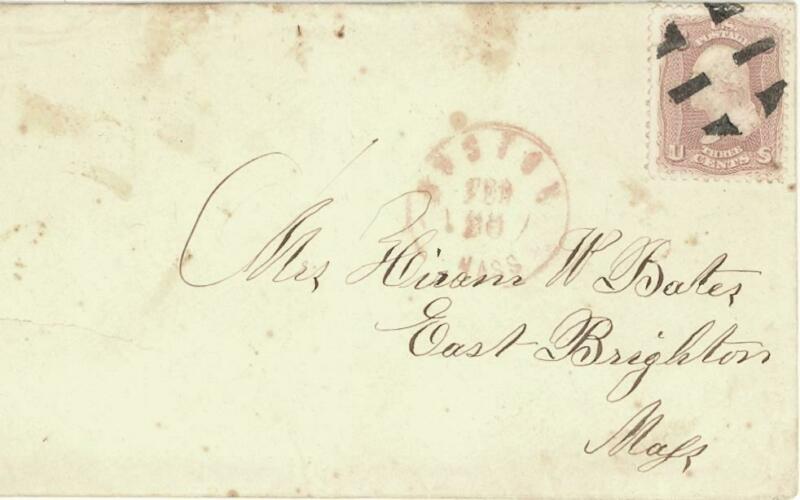 U.S.
POSTAGE
THREE
U CENTS S
BOSTON
FEB
28
MASS
Mrs Hiram W Bates
East Brighton
Mass